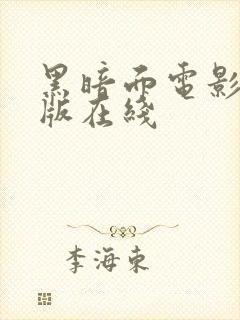 黑暗面電影
版在綫
李海東